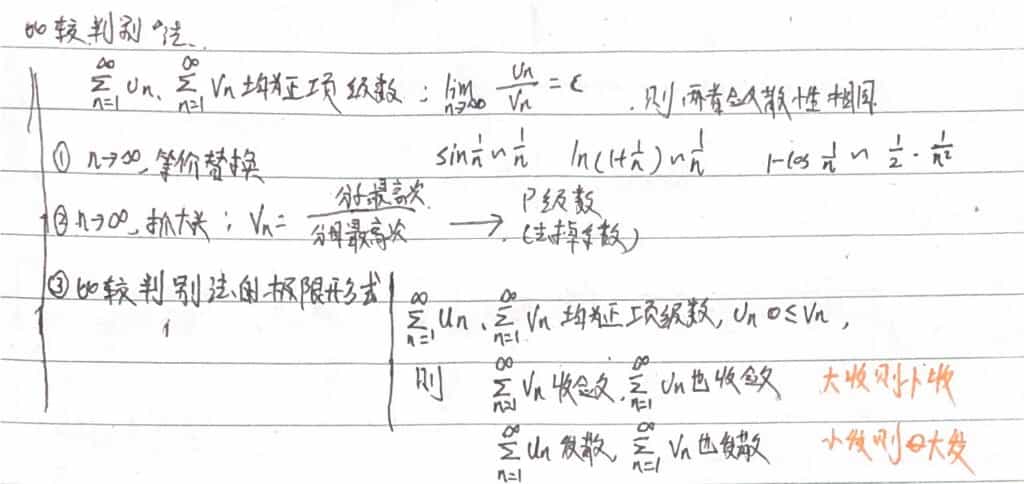 比较判别法
∑_{n=1}^{∞} Un、∑_{n=1}^{∞} Vn 均为正项级数：lim_{n→∞} Un/Vn = c ,则两者敛散性相同
① n→∞,等价替换 sin 1/n ~ 1/n ln(1+1/n) ~ 1/n 1-cos 1/n ~ 1/2 · 1/n²
② n→∞,抓大头：Vn = 分子最高次/分母最高次 → P级数 (去掉系数)
③ 比较判别法的极限形式
∑_{n=1}^{∞} Un、∑_{n=1}^{∞} Vn 均为正项级数, Un ≤ Vn ,
则 ∑_{n=1}^{∞} Vn 收敛,∑_{n=1}^{∞} Un 也收敛 大收则小收
∑_{n=1}^{∞} Un 发散, ∑_{n=1}^{∞} Vn 也发散 小发则大发